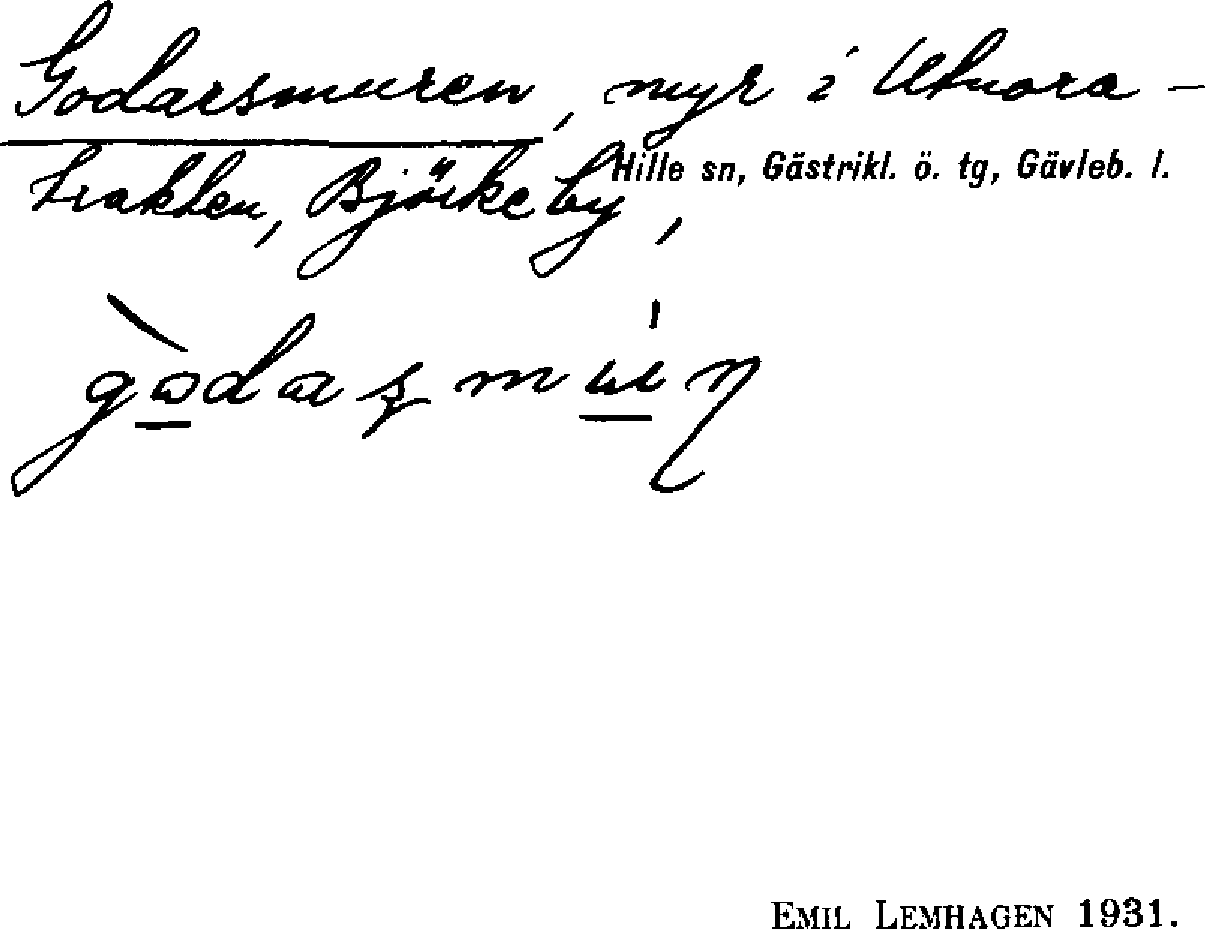 Godarsmuren, myr i Utnora-
Hille sn, Gästrikl. ö. tg, Gävleb. l.
trakten, Björke by,
EMIL LEMHAGEN 1931.